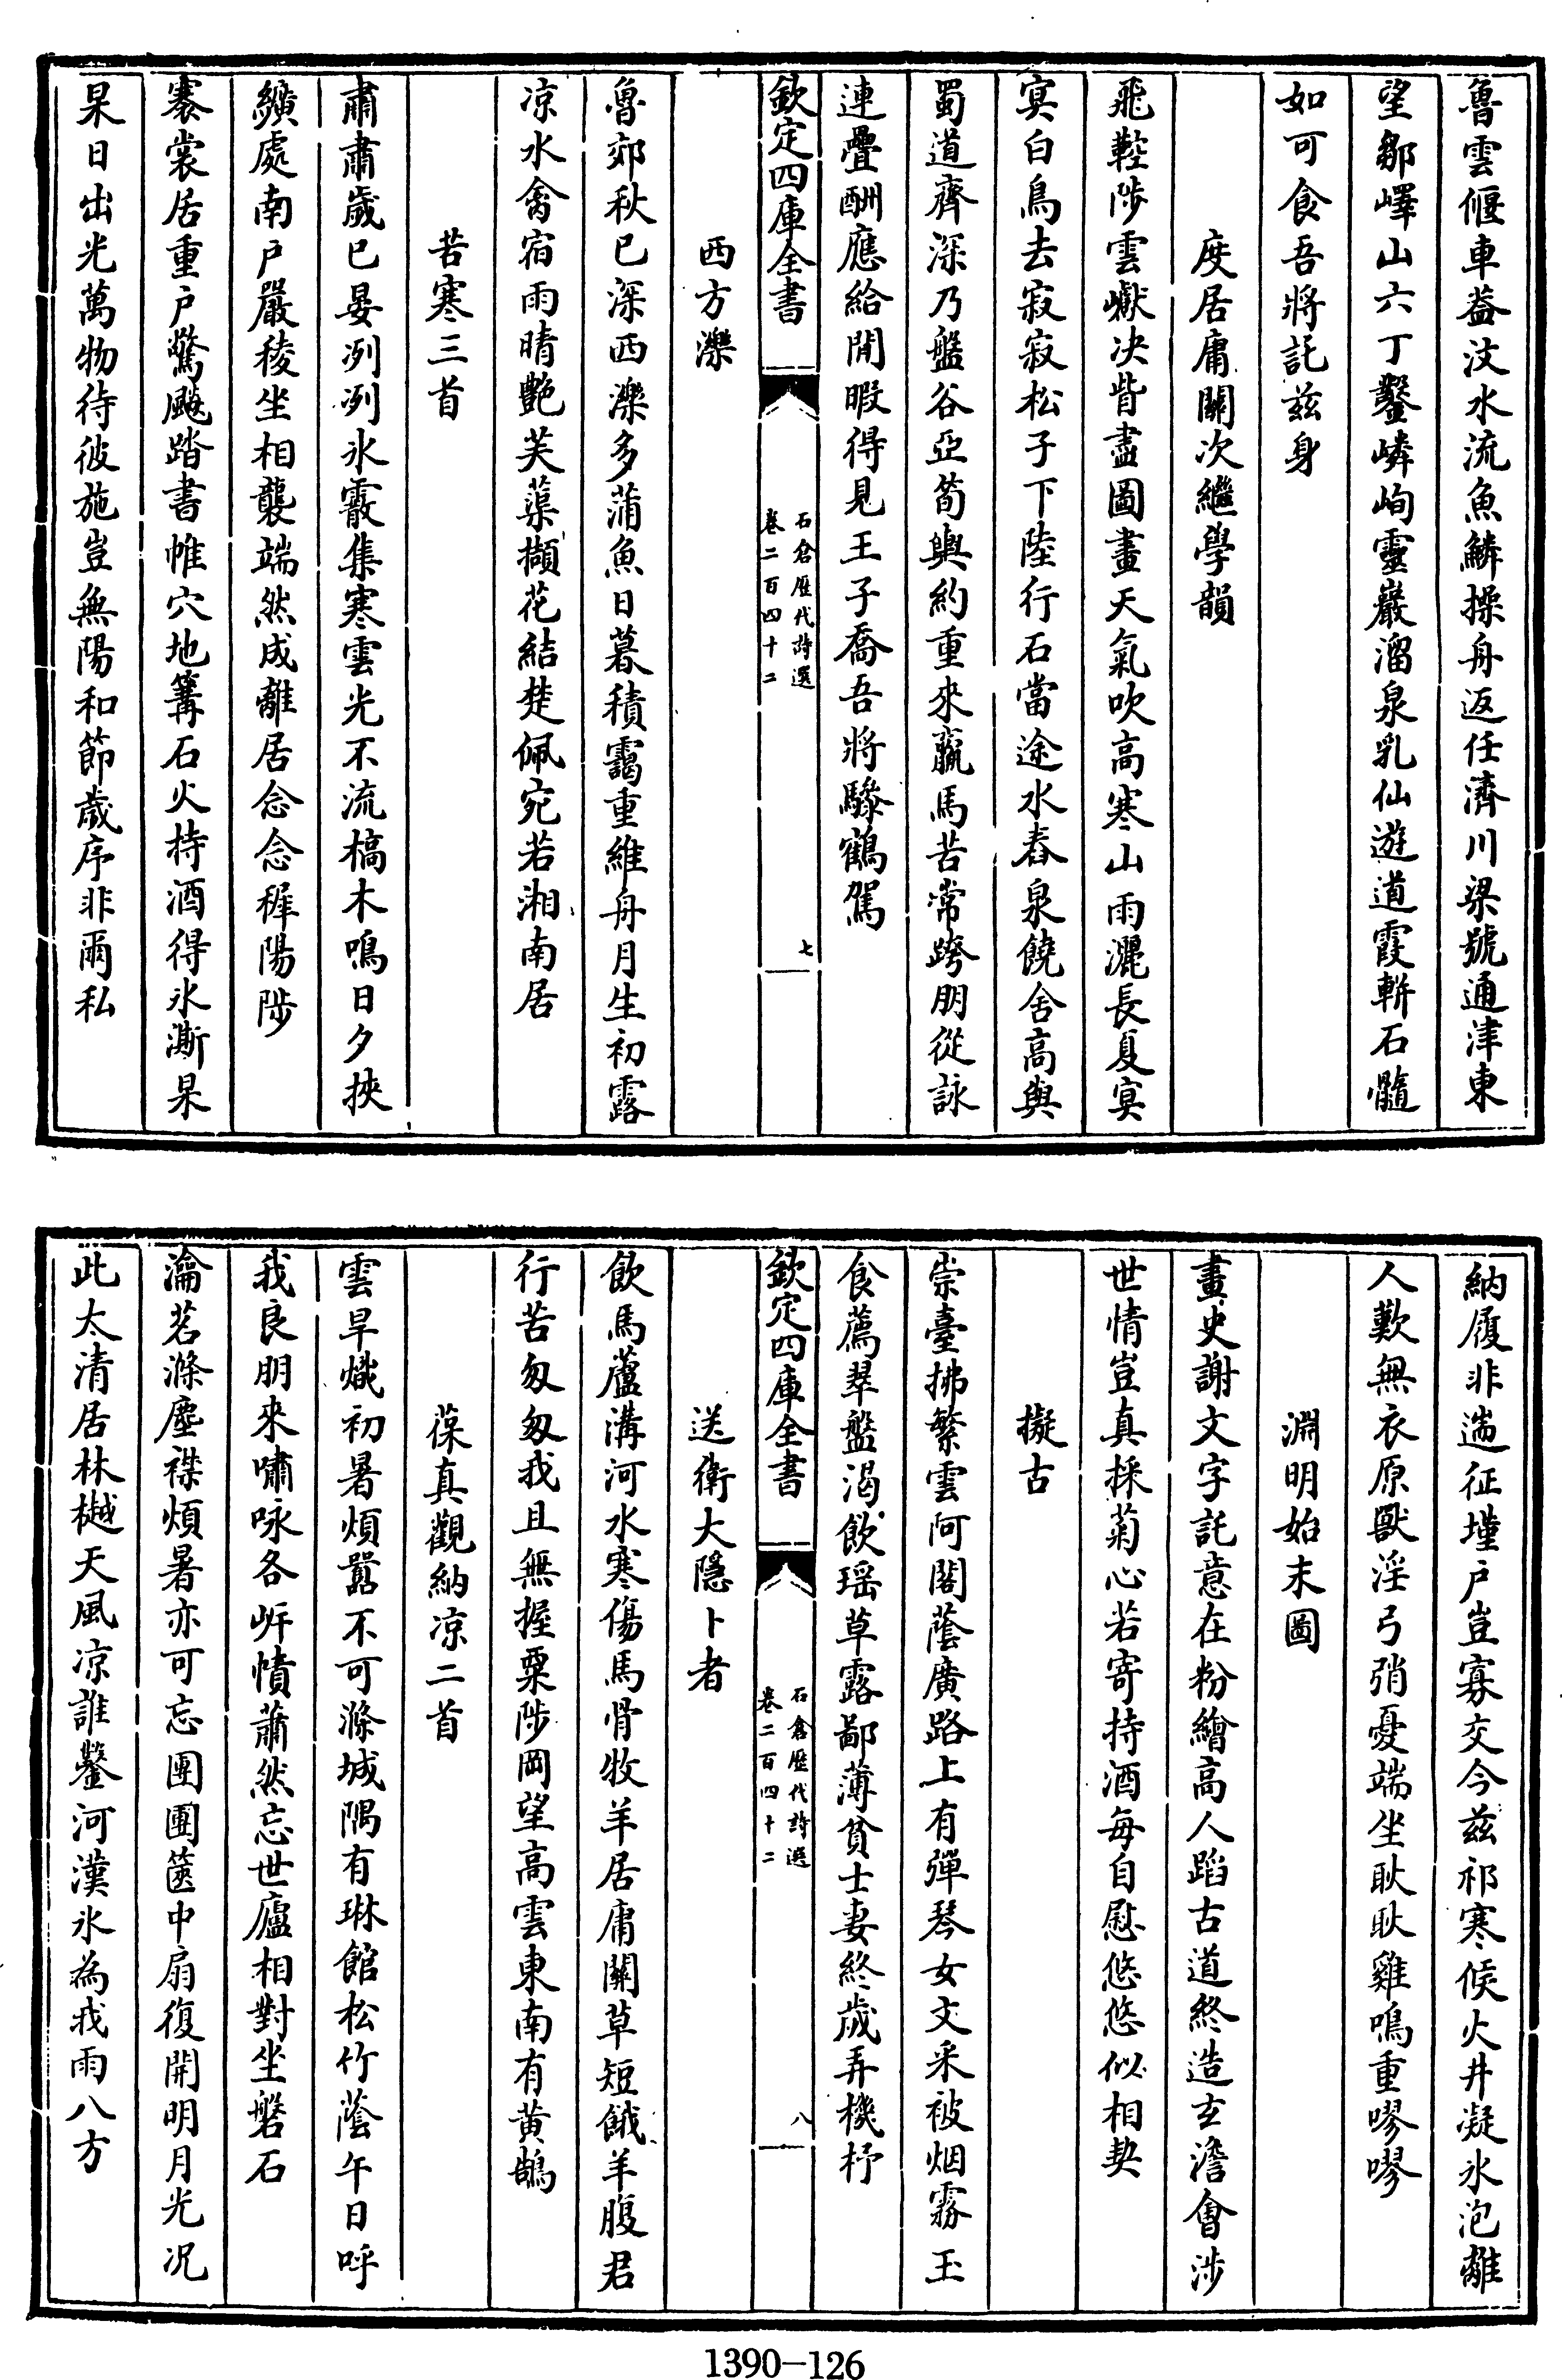 魯雲偃車葢汶水流魚鱗操舟返任濟川梁號通津東
望鄒嶧山六丁鑿嶙峋靈巖溜泉乳仙遊道霞軿石髓
如可食吾將託兹身
度居庸關次繼學韻
飛鞚陟雲巘决眥盡圖畫天氣吹高寒山雨灑長夏冥
冥白鳥去寂寂松子下陸行石當途水舂泉饒舍高與
蜀道齊深乃盤谷亞筍輿約重來羸馬苦常跨朋從詠
連疊酬應給閒暇得見王子喬吾將驂鶴駕
欽定四庫全書
石倉歷代詩選
卷二百四十二
七
西方濼
魯郊秋已深西濼多蒲魚日暮積靄重維舟月生初露
凉水禽宿雨晴艶芙蕖擷花結楚佩宛若湘南居
苦寒三首
肅肅歲已晏冽冽氷霰集寒雲光不流槁木鳴日夕挾
纊處南戶嚴稜坐相襲端然成離居念念穉陽陟
褰裳居重戶驚飈踏書帷穴地篝石火持酒得氷澌杲
杲日出光萬物待彼施豈無陽和節歲序非爾私
納履非遄征墐戶豈寡交今兹祁寒候火井凝氷泡離
人歎無衣原獸淫弓弰憂端坐耿耿雞鳴重嘐嘐
淵明始末圖
畫史謝文字託意在粉繪高人蹈古道終造玄澹會涉
世情豈真採菊心若寄持酒每自慰悠悠似相契
擬古
崇臺拂繁雲阿閣蔭廣路上有彈琴女文采被烟霧玉
食薦翠盤渴飲瑶草露鄙薄貧士妻終歲弄機杼
欽定四庫全書
石倉歷代詩選
卷二百四十二
八
送衛大隱卜者
飲馬蘆溝河水寒傷馬骨牧羊居庸關草短餓羊腹君
行苦匆匆我且無握粟陟岡望高雲東南有黄鵠
葆真觀納凉二首
雲旱熾初暑煩囂不可滌城隅有琳館松竹蔭午日呼
我良朋來嘯咏各岸幘蕭然忘世廬相對坐磐石
瀹茗滌塵襟煩暑亦可忘團團篋中扇復開明月光况
此太清居林樾天風凉誰鑿河漢氷為我雨八方
1390-126